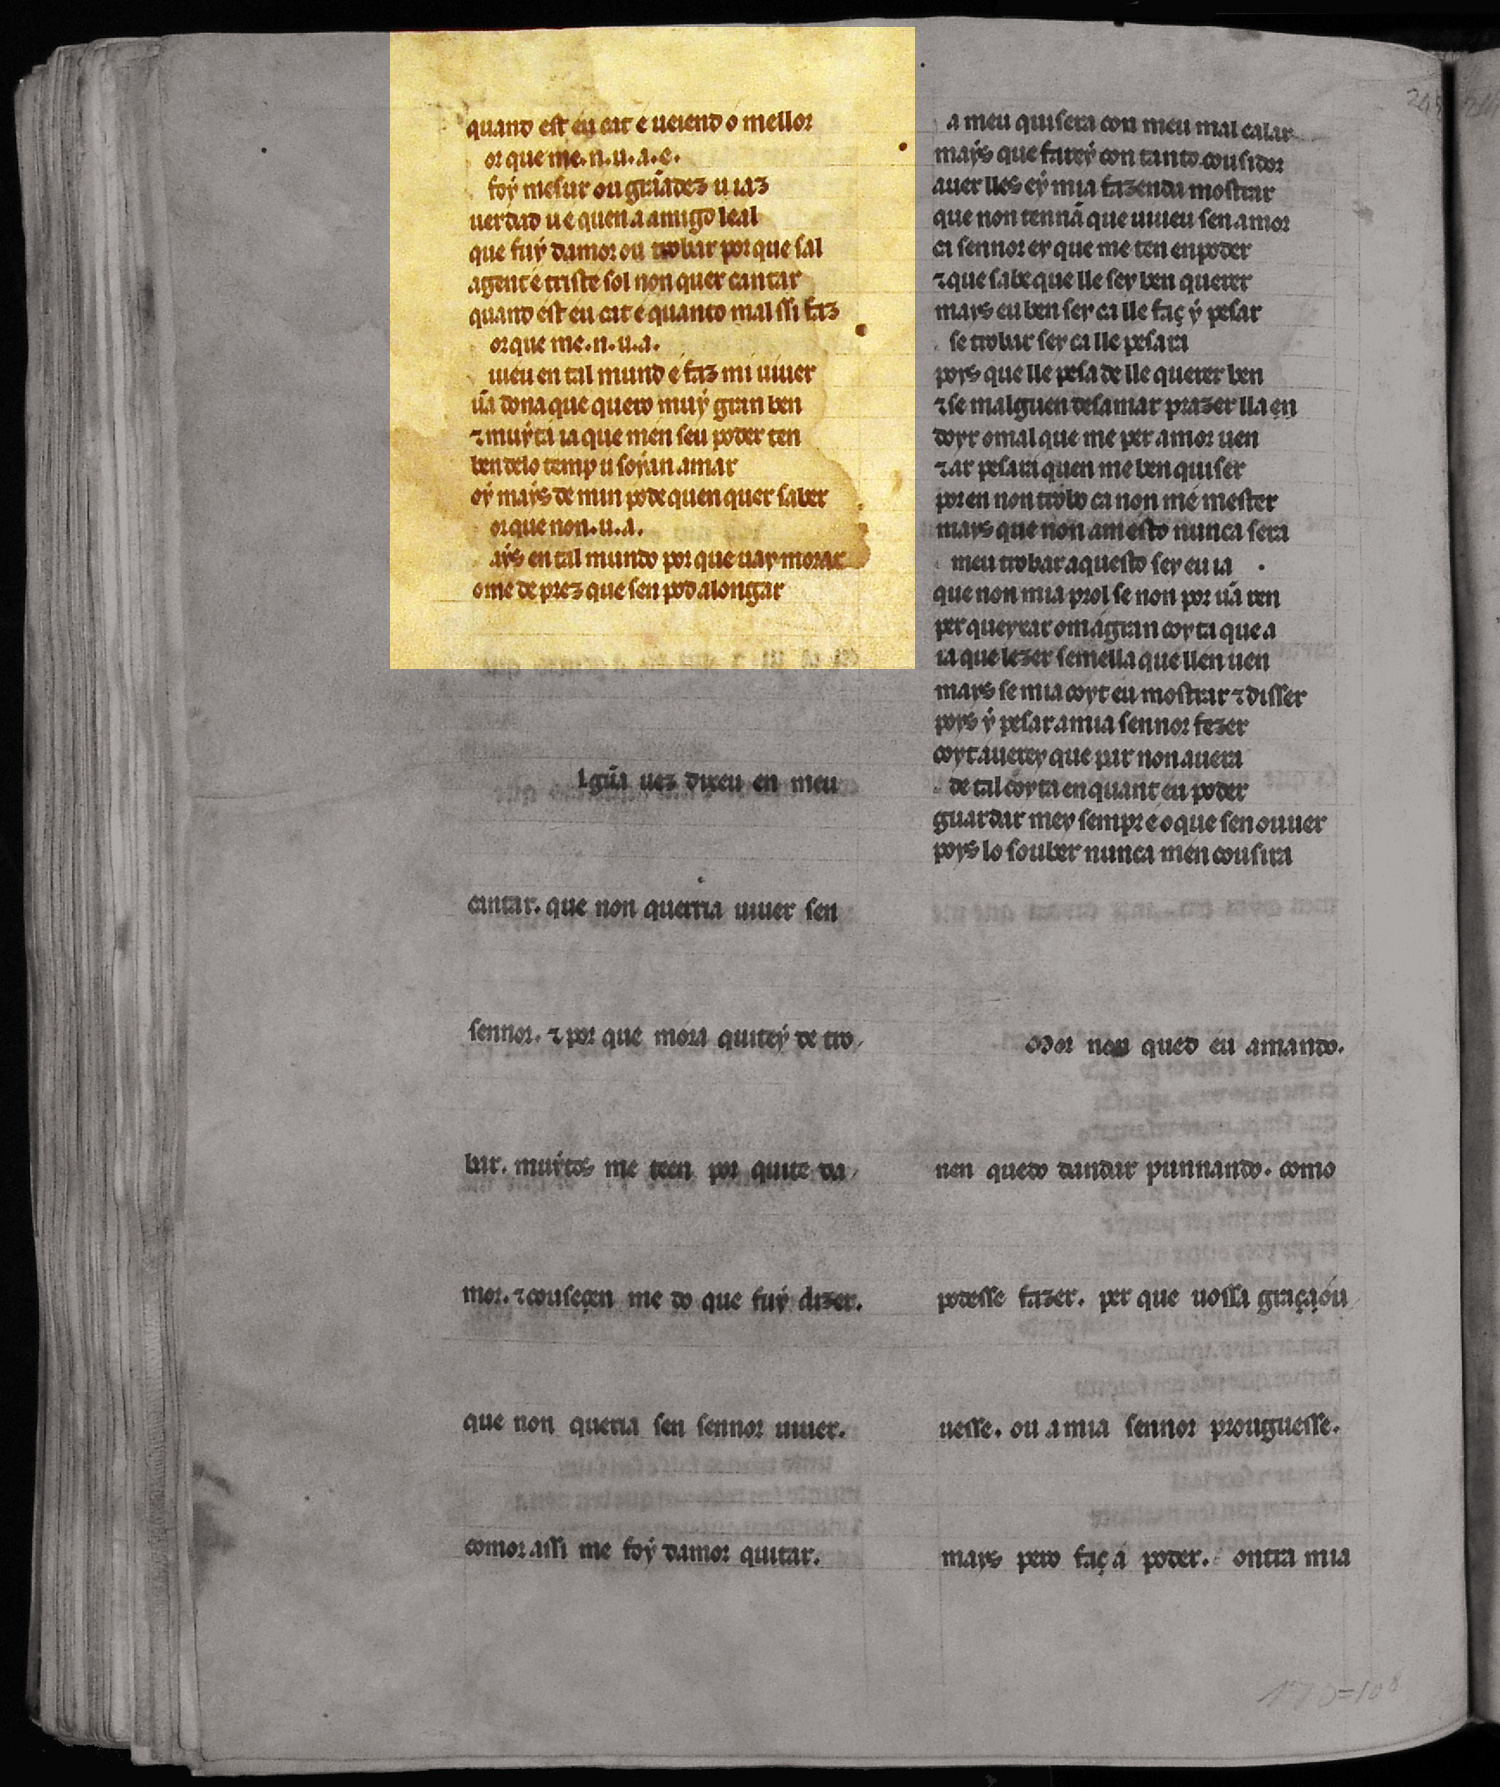 quand est eu cat e ueiend o mellor
or que me.n.u.a.e.
foy mesur ou grãdez u iaz
uerdad u é quen a amigo leal
que fuy damor ou trobar por que sal
a gent é triste sol non quer cantar
quand est eu cat e quanto mal ssi faz
or que me.n.u.a.
uieu en tal mund e faz mi uiuer
ũa dona que quero muy gran ben
⁊ muyta ia que men seu poder ten
ben delo temp u soyan amar
oy mays de min pode quen quer saber
or que non.u.a.
ays en tal mundo por que uay morar
ome de prez que sen pod alongar
lgũa uez dixeu en meu
cantar. que non querria uiuer sen
sennor. ⁊ por que mora quitey de tro
bar. muytos me teen por quite da
mor. ⁊ cousecen me do que fuy dizer.
que non queria sen sennor uiuer.
comor assi me foy damor quitar.
a meu quisera con meu mal calar
mays que farey con tanto cousidor
auer lles ey mia fazenda mostrar
que non tennã que uiueu sen amor
ei sennor ey que me ten en poder
⁊ que sabe que lle sey ben querer
mays eu ben sey ca lle faç y pesar
se trobar sey ca lle pesara
poys que lle pesa de lle querer ben
⁊ se malguen desamar prazer lla en
doyr o mal que me per amor uen
⁊ ar pesara quen me ben quiser
por en non trobo ca non me mester
mays que non am esto nunca sera
meu trobar aquesto sey eu ia
que non mia prol se non por ũa ren
per queyxar om a gran coyta que a
ia que lezer semella que llen uen
mays se mia coyt eu mostrar ⁊ disser
poys y pesar a mia sennor fezer
coyt auerey que par non auera
de tal coyta en quant eu poder
guardar mey sempr e o que sen ouuer
poys lo souber nunca men cousira
Mor non qued eu amando.
nen quedo dandar punnando. como
podesse fazer. per que uossa graça ou
uesse. ou a mia sennor prouguesse.
mays pero faç a poder. ontra mia